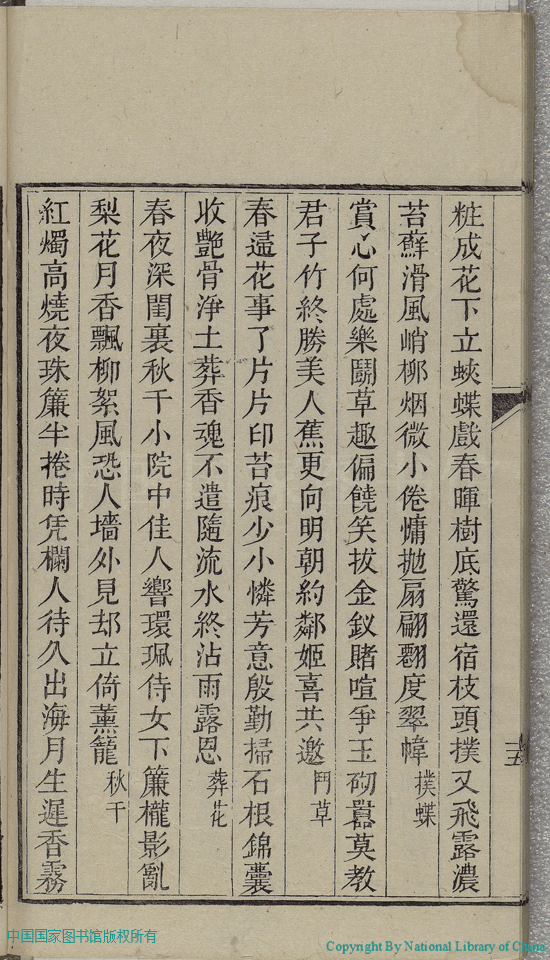 粧成花下立蛺蝶戲春暉樹底驚還宿枝頭撲又飛露濃
苔蘚滑風峭柳烟微小倦慵抛扇翩翾度翠幃撲蝶
賞心何處樂鬭草趣偏饒笑拔金釵賭喧爭玉砌囂莫教
君子竹終勝美人蕉更向明朝約鄰姬喜共邀鬥草
春逼花事了片片印苔痕少小憐芳意殷勤掃石根錦囊
收艷骨淨土葬香魂不遣隨流水終沾雨露恩葬花
春夜深閨裏秋千小院中佳人響環珮侍女下簾櫳影亂
梨花月香飄柳絮風恐人墻外見却立倚薰籠秋千
紅燭高燒夜珠簾半捲時凭欄人待久出海月生遲香霧
十五
中国国家图书馆版权所有
Copyright By National Library of China